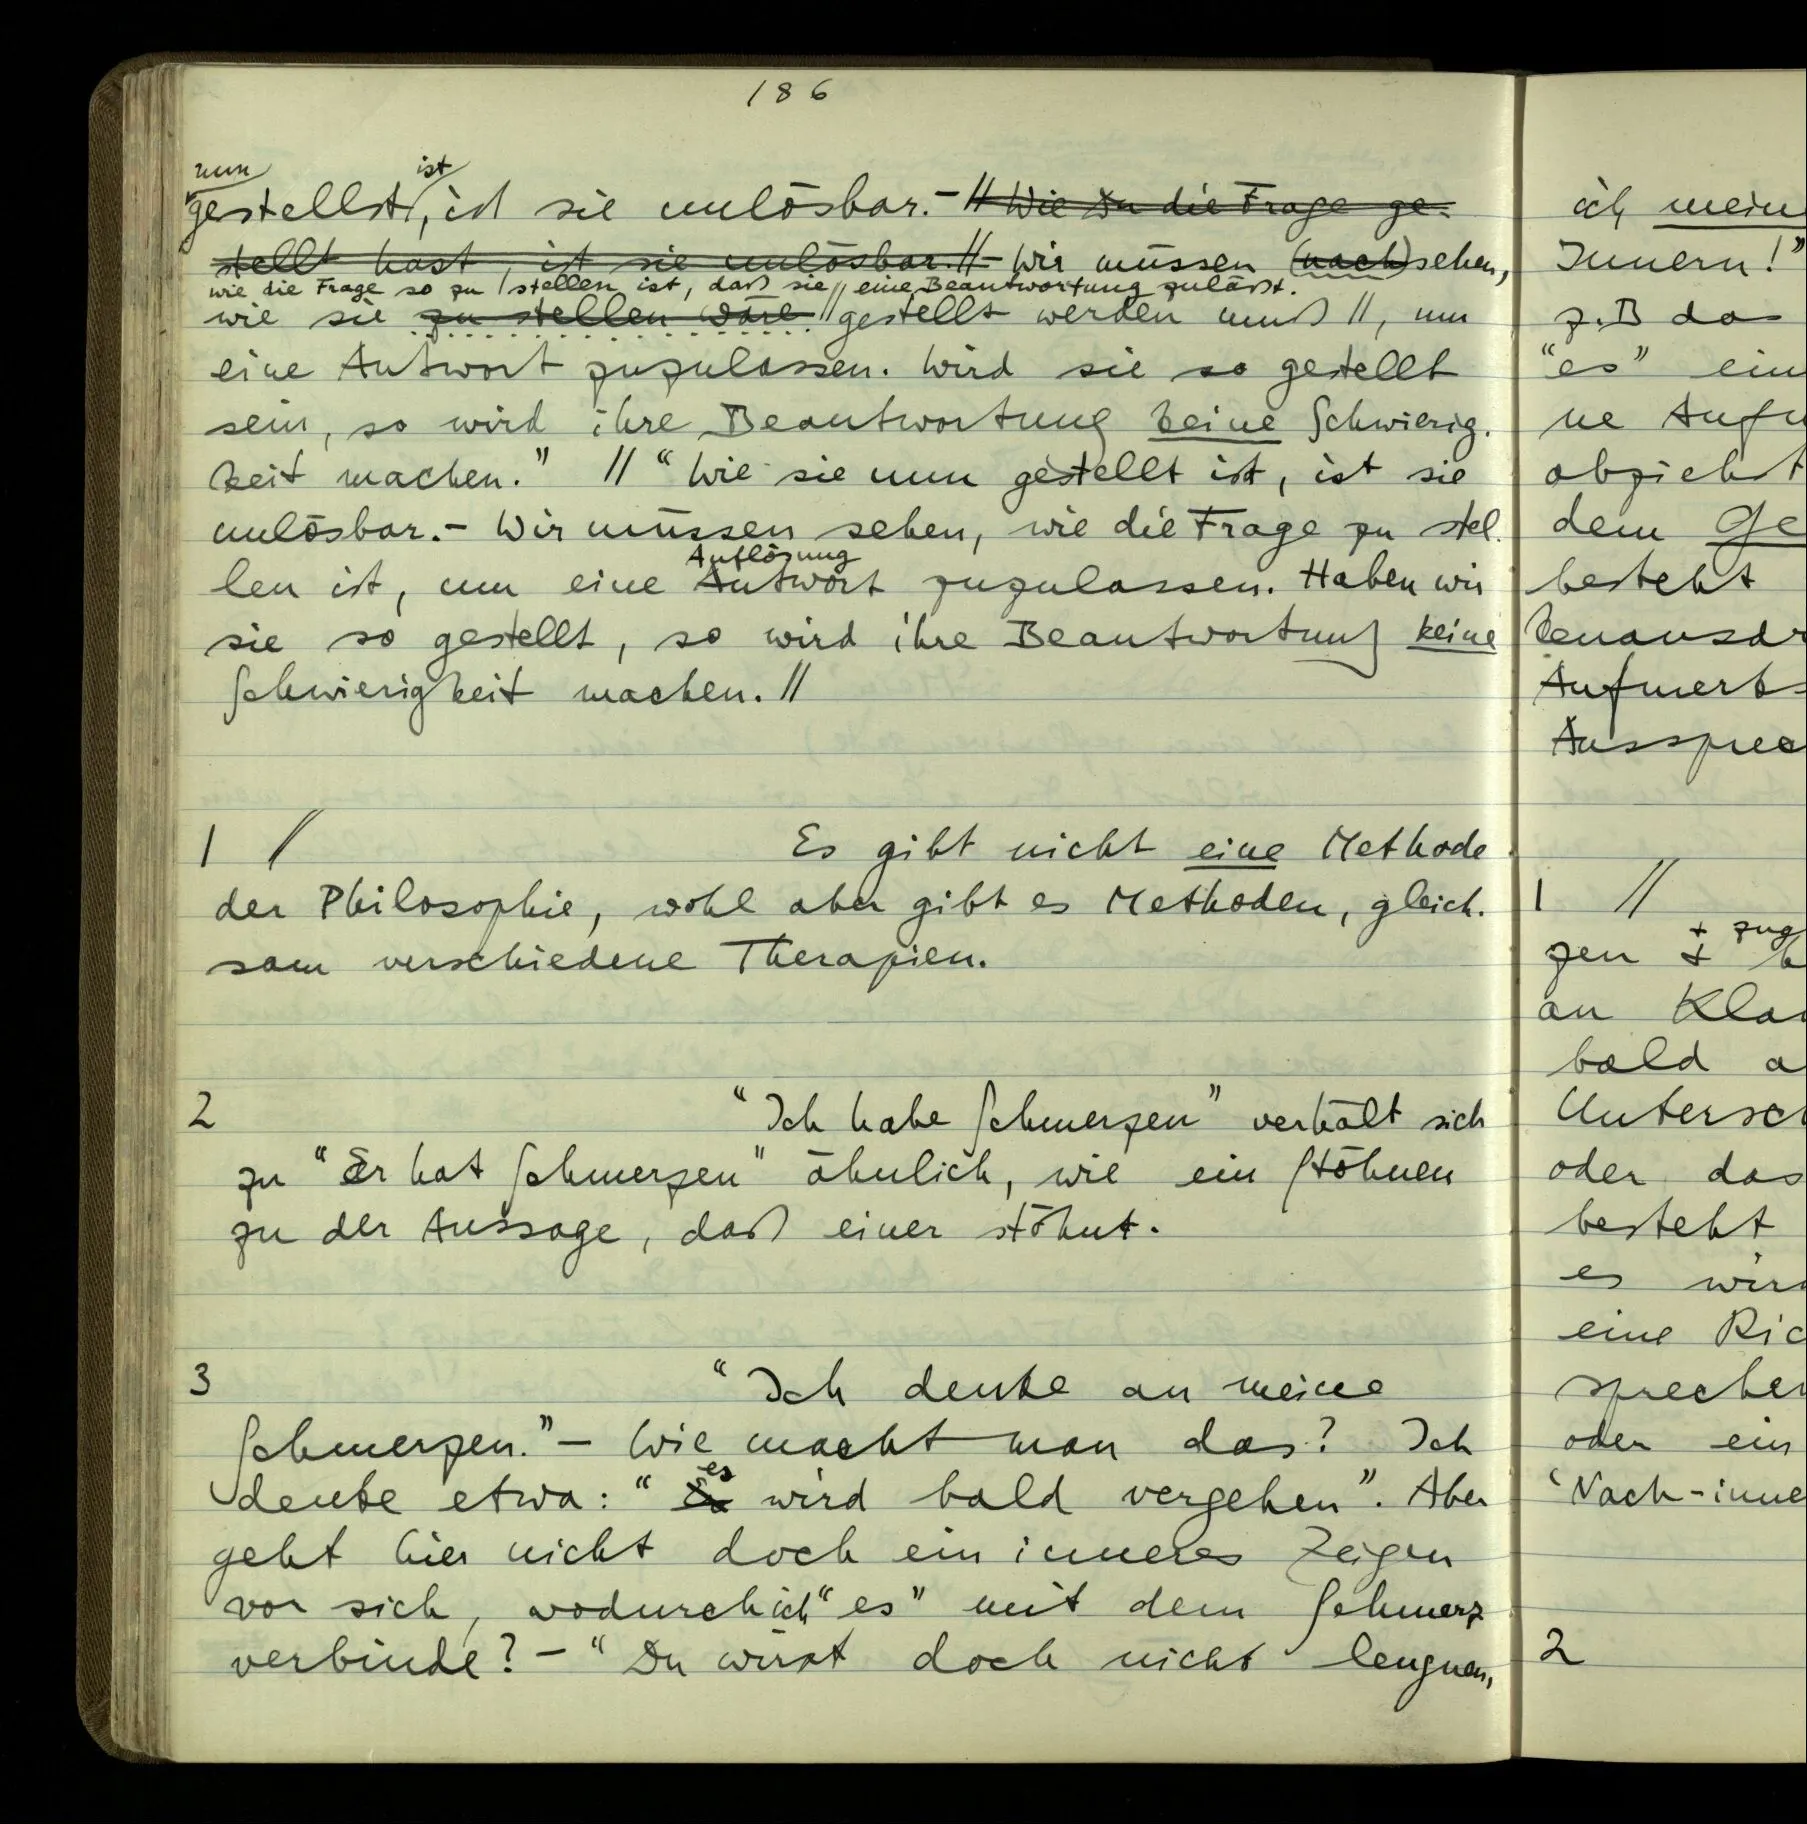 186
nun ist
gestellt, ist sie unlösbar.– // Wie Du die Frage ge-
stellt hast, ist sie unlösbar. // – Wir müssen (nach)sehen,
wie die Frage so zu stellen ist, daß sie // eine Beantwortung zuläßt.
wie sie zu stellen wäre // gestellt werden muß //, um
eine Antwort zuzulassen. Wird sie so gestellt
sein, so wird ihre Beantwortung keine Schwierig-
keit machen.” // “Wie sie nun gestellt ist, ist sie
unlösbar.– Wir müssen sehen, wie die Frage zu stel-
Auflösung
len ist, um eine Antwort zuzulassen. Haben wir
sie so gestellt, so wird ihre Beantwortung keine
Schwierigkeit machen. //
1 / Es gibt nicht eine Methode
der Philosophie, wohl aber gibt es Methoden, gleich-
sam verschiedene Therapien.
2 “Ich habe Schmerzen” verhält sich
zu “Er hat Schmerzen” ähnlich, wie ein Stöhnen
zu der Aussage, daß einer stöhnt.
3 “Ich denke an meine
Schmerzen.”– Wie macht man das? Ich
es
denke etwa: “ wird bald vergehen”. Aber
geht hier nicht doch ein inneres Zeigen
vor sich, wodurch ich “es” mit dem Schmerz
verbinde? – “Du wirst doch nicht leugnen,
ich mein
Innern!”
z.B das
“es” ein
ne Aufm
abzieht
dem Ge
besteht
kenausdr
Aufmerks
Ausspre
1 //
zug
zen
an Kla
bald a
Untersch
oder das
besteht
es wir
eine Ric
sprechen
oder ein
‘Nach-inne
2